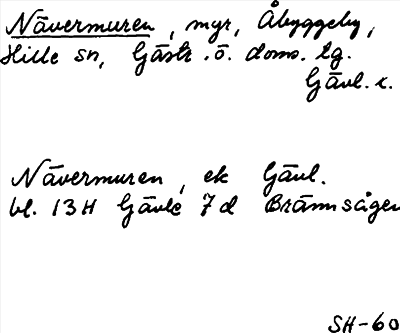 Nävermuren, myr, Åbyggeby,
Hille sn, Gästr. ö. doms. tg.
Gävl. l.
Nävermuren, ek Gävl.
bl. 13H Gävle 7d Brännsågen
SH-60